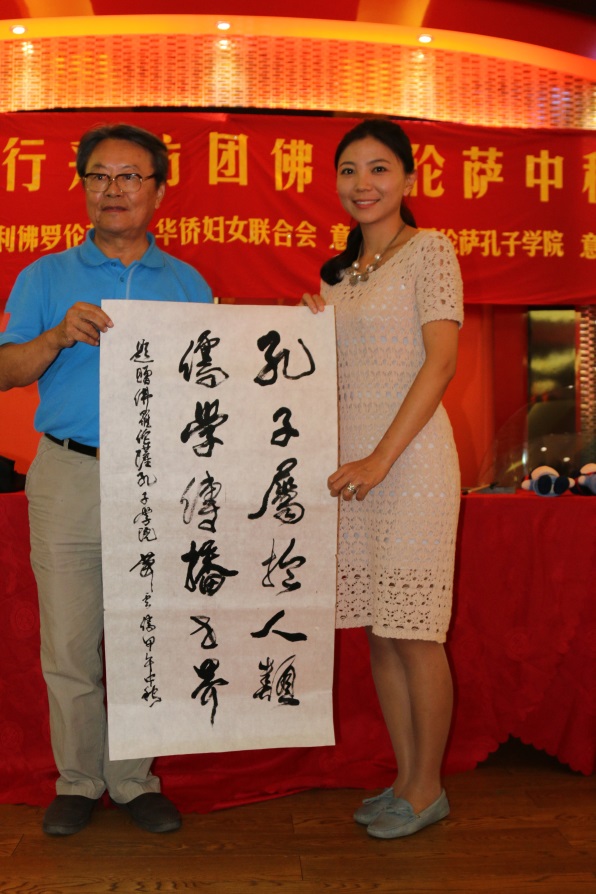 行
访团佛
伦萨中秋
利佛罗伦
华侨妇女联合会
意
伦萨孔子学院
意
孔子属於人類
儒學傳播世界
題贈佛羅伦薩孔子學院
甲午中秋